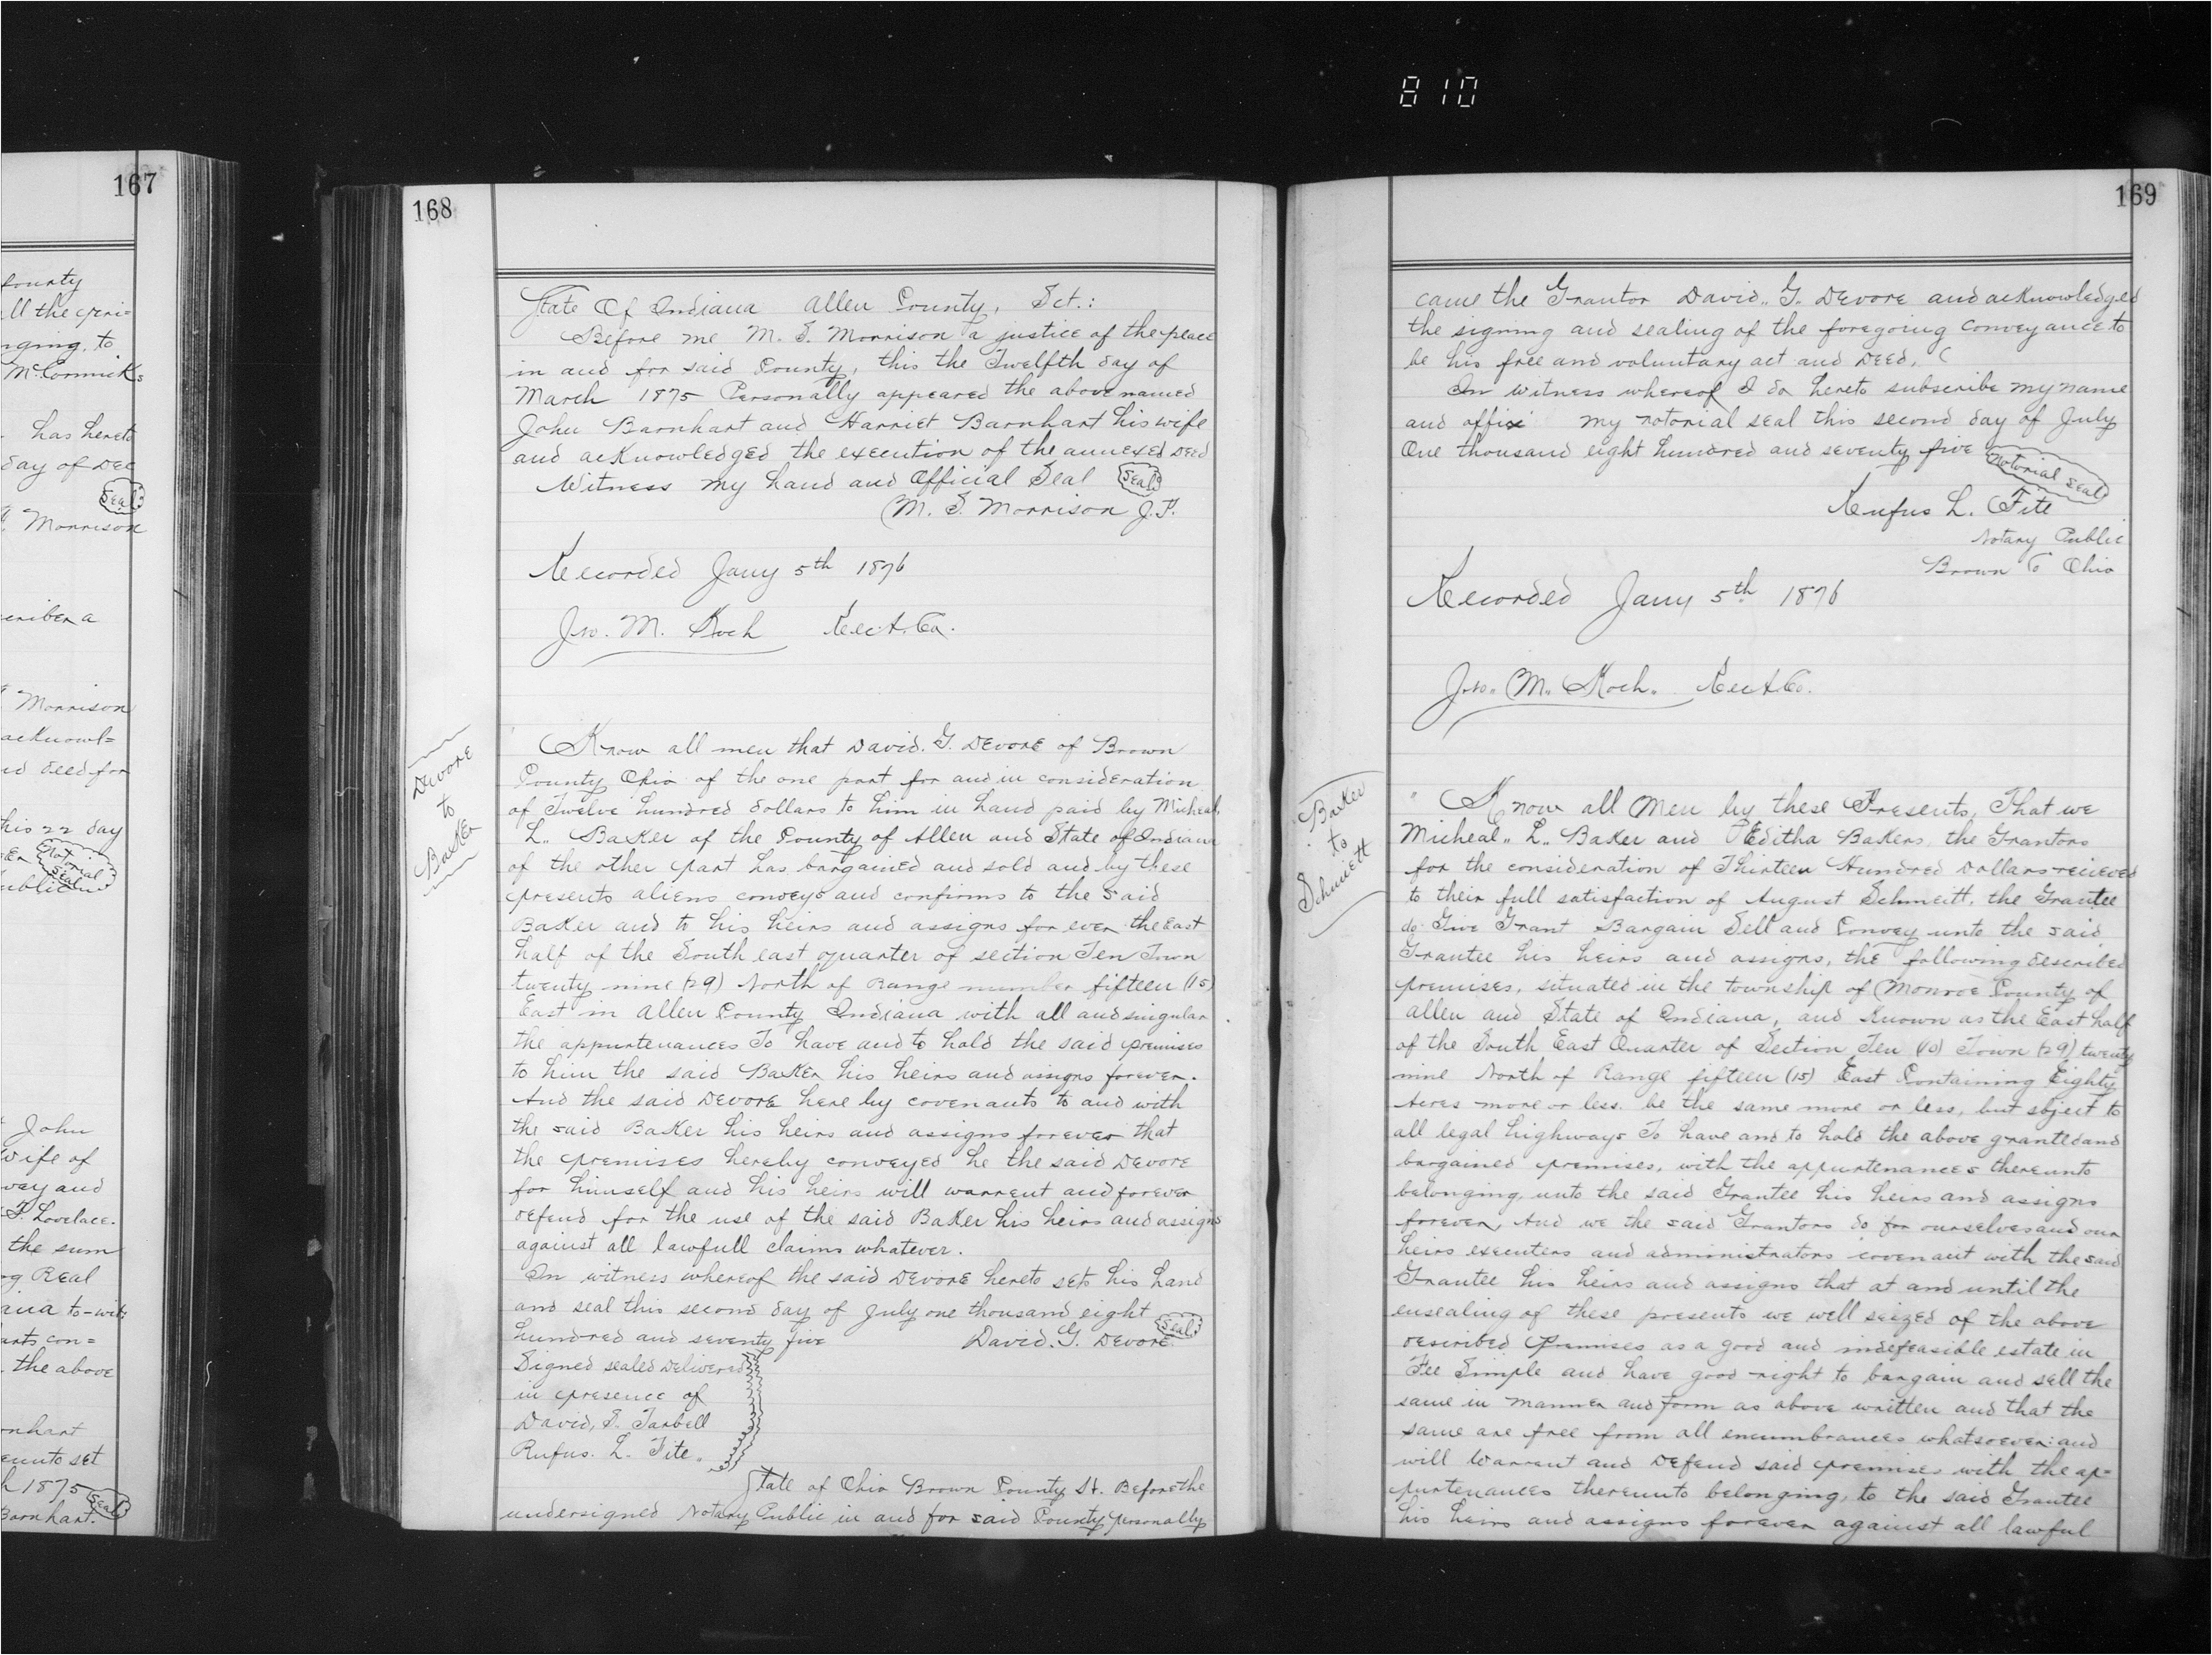 810
167
county
all the
nging, to
McCormick
has hereto
day of Dec
Seal
Morrison
scriber a
Morrison
acknowl=
deed for
this 22 day
Notorial
Seal
ublic
John
Wife of
vey and
T. Lovelace.
the sum
Real
iana to-wit:
arts con=
the above
nhart
eunto set
h 1875
Seal
Barnhart.
168
State Of Indiana Allen County, Sct.:
Before me M. S. Morrison a justice of the peace
in and for said County, this the Twelfth day of
March 1875 Personally appeared the above named
John Barnhart and Harriet Barnhart his wife
and acknowledged the execution of the annexed Deed
Witness my hand and Official Seal Seal
M. S. Morrison J.P.
Recorded Jany 5th 1876
Jno. M. Koch Rec A. Co.
Devore
to
Baker
Know all men that David. G. Devore of Brown
County Ohio of the one part for and in consideration
of Twelve hundred dollars to him in hand paid by Micheal,
L. Baker of the County of Allen and State of Indiana
of the other part has bargained and sold and by these
presents aliens conveys and confirms to the said
Baker and to his heirs and assigns for ever the East
half of the South east quarter of section Ten Town
twenty nine (29) North of Range number fifteen (15)
East in Allen County Indiana with all and singular
the appurtenances To have and to hold the said premises
to him the said Baker his heirs and assigns forever.
And the said Devore here by covenants to and with
the said Baker his heirs and assigns forever that
the premises hereby conveyed he the said Devore
for himself and his heirs will warrent and forever
defend for the use of the said Baker his heirs and assigns
against all lawfull claims whatever.
In witness whereof the said Devore hereto sets his hand
and seal this second day of July one thousand eight
hundred and seventy five David. G. Devore Seal
Signed sealed Delivered
in presence of
David, S. Tarbell
Rufus. L. Fite.
State of Ohio Brown County St. Before the
undersigned Notary Public in and for said County personally
169
came the Grantor David. G. Devore and acknowledged
the signing and sealing of the foregoing conveyance to
be his free and voluntary act and Deed.
In witness whereof I do hereto subscribe my name
and affix my notorial seal this second day of July
One thousand eight hundred and seventy five Notorial Seal
Rufus L. Fite
Notary Public
Brown Co Ohio
Recorded Jany 5th 1876
Jno. M. Koch. Rec A. Co.
Baker
to
Schmett
Know all Men by these Presents, That we
Micheal L. Baker and Editha Bakers the Grantors
for the consideration of Thirteen Hundred Dollars recieved
to their full satisfaction of August Schmeitt, the Grantee
do Give Grant Bargain Sell and Convey unto the said
Grantee his heirs and assigns, the following described
premises, situated in the township of Monroe County of
Allen and State of Indiana, and Known as the East half
of the South East Quarter of Section Ten (10) Town (29) twenty
nine North of Range fifteen (15) East Containing Eighty
Acres more or less. be the same more or less, but sbject to
all legal highways To have and to hold the above granted and
bargained premises, with the appurtenances thereunto
belonging, unto the said Grantee his heirs and assigns
forever, And we the said Grantors do for ourselves and our
heirs executers and administrators covenant with the said
Grantee his heirs and assigns that at and until the
ensealing of these presents we well seized of the above
described Premises as a good and indefeasible estate in
Fee Simple and have good right to bargain and sell the
same in manner and form as above written and that the
same are free from all encumbrances whatsoever: and
will Warrent and Defend said premises with the ap=
purtenances thereunto belonging, to the said Grantee
his heirs and assigns forever against all lawful